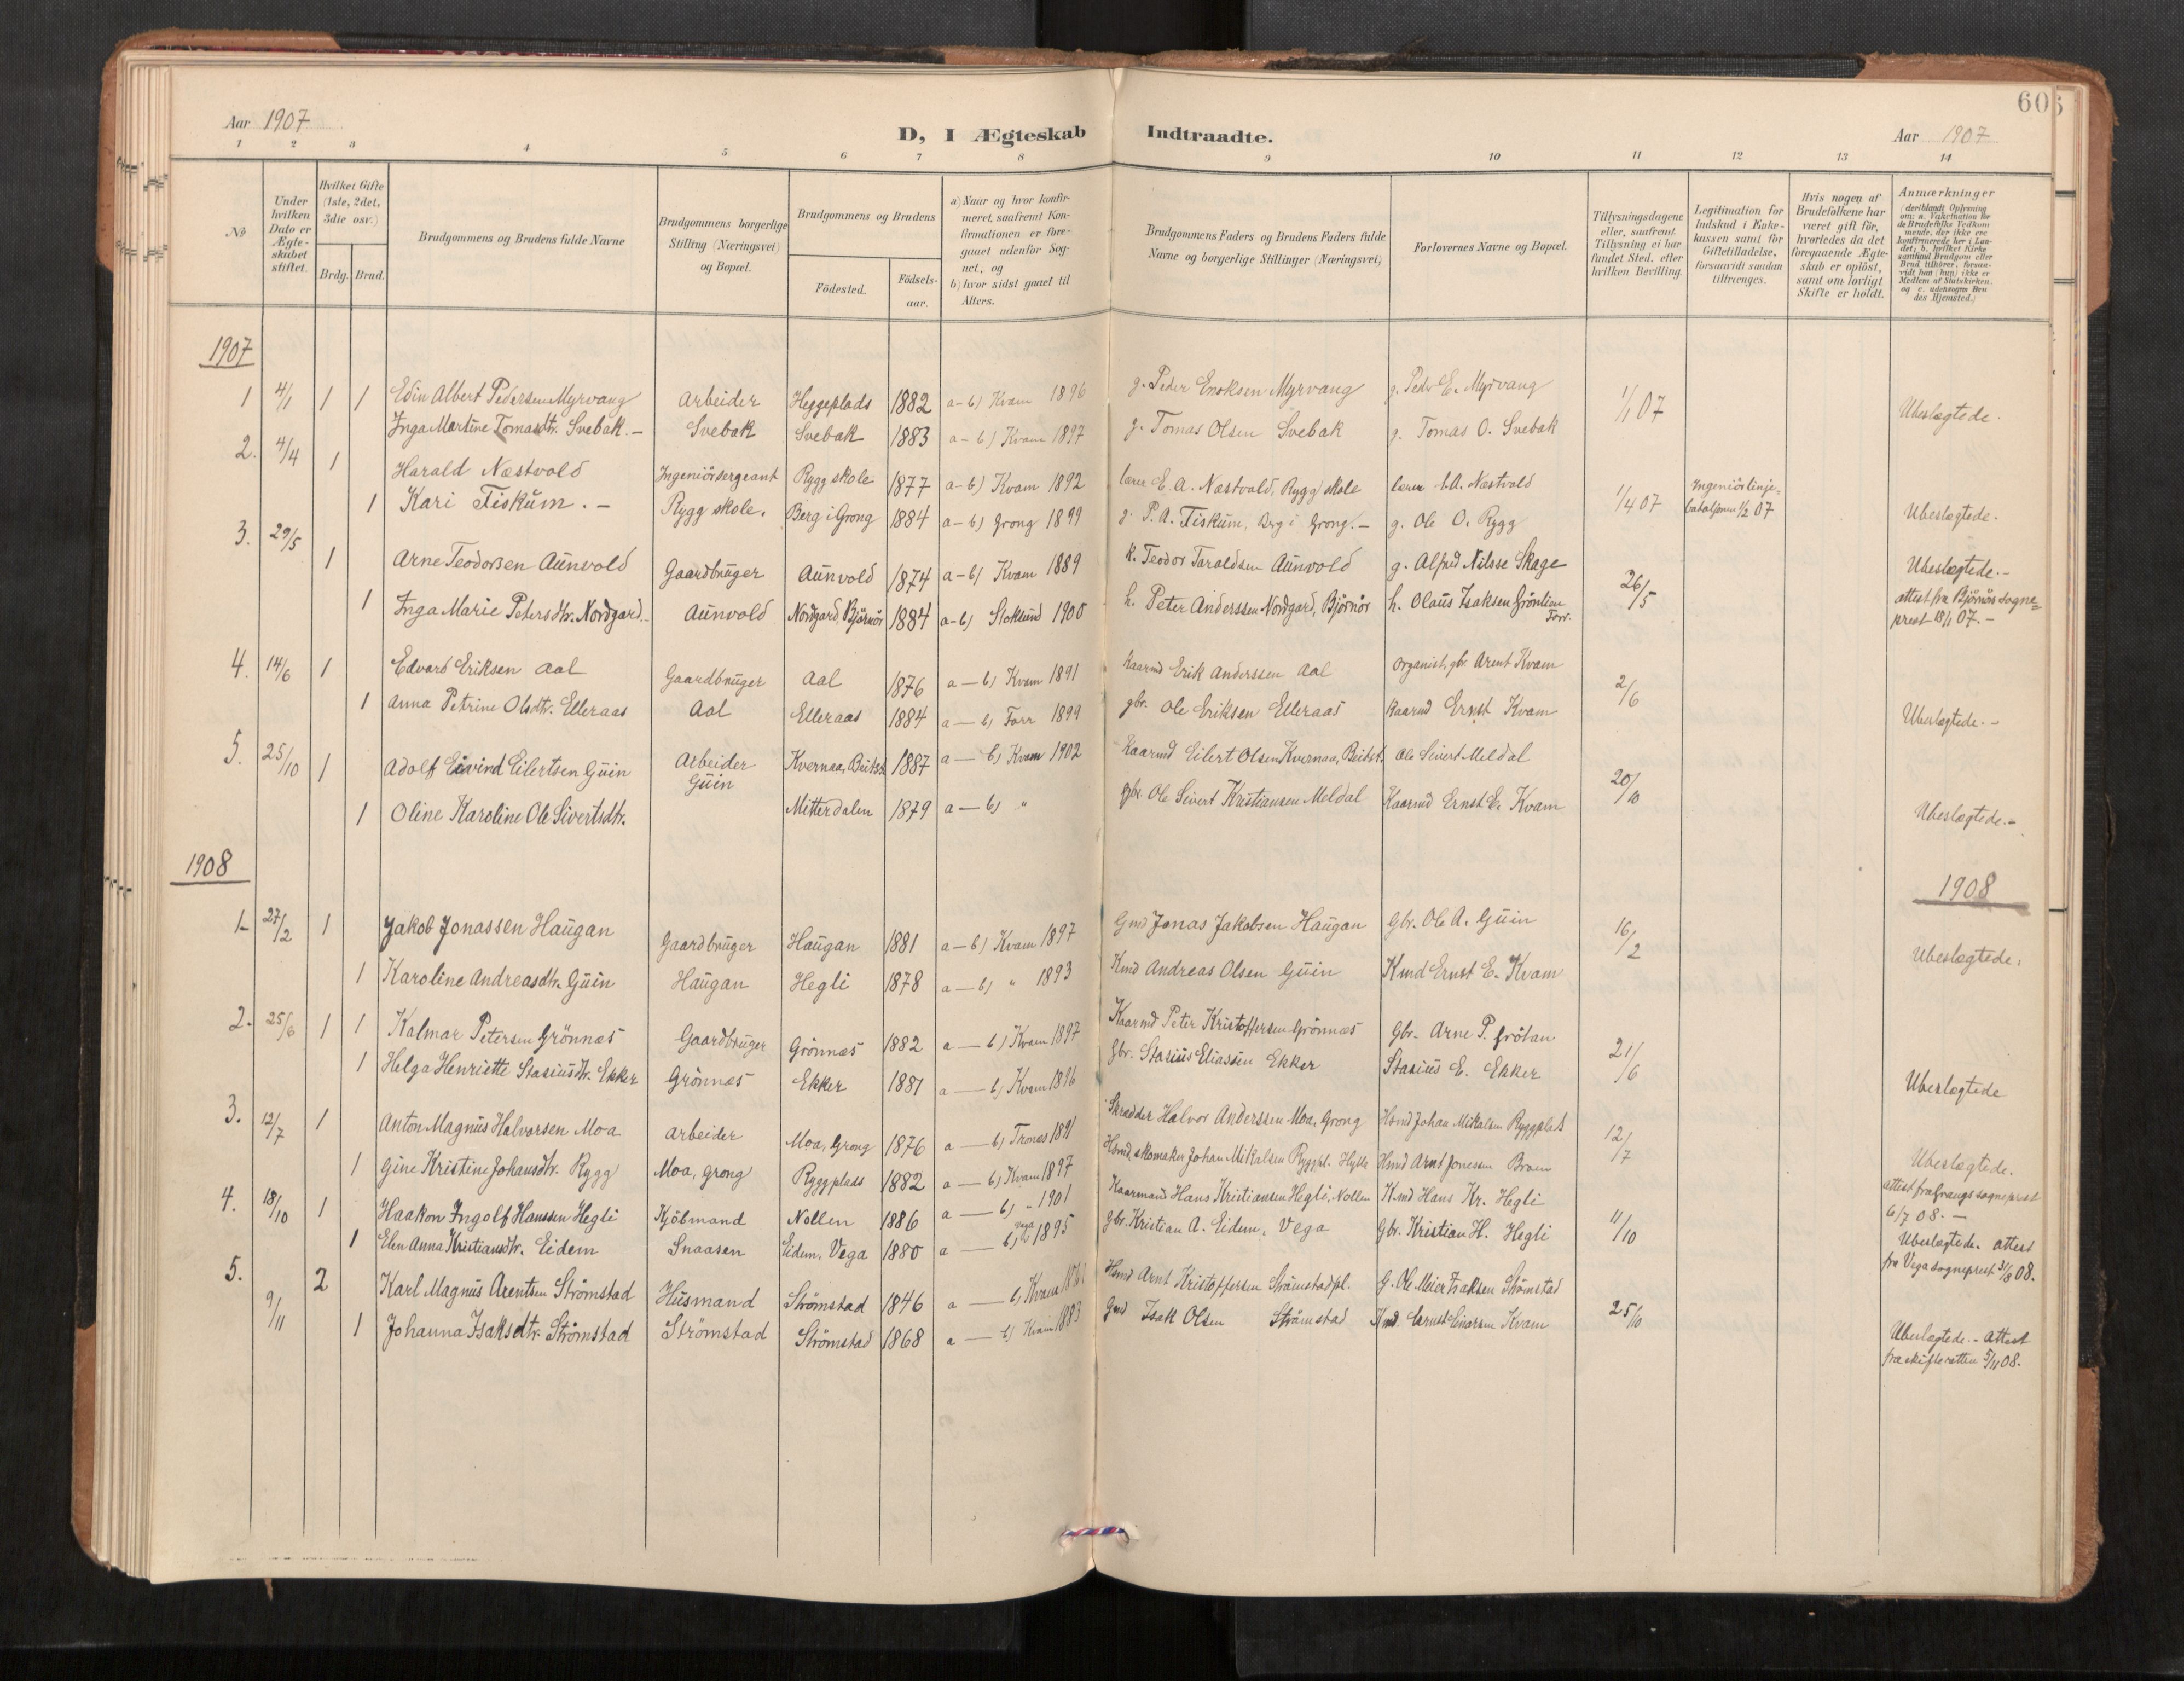 605
Aar 1907
D, I Ægteskab Indtraadte.
Aar 1907
1 2 3 4 5 6 7 8 9 10 11 12 13 14
No
Under hvilken Dato er Ægteskabet stiftet.
Hvilket Gifte (1ste, 2det, 3die osv.)
Brdg. Brud.
Brudgommens og Brudens fulde Navne
Brudgommens borgerlige Stilling (Næringsvei) og Bopæl.
Brudgommens og Brudens
Födested.
Födsels-aar.
a) Naar og hvor konfirmeret, saafremt Konfirmationen er foregaaet udenfor Sognet, og
b) hvor sidst gaaet til Alters.
Brudgommens Faders og Brudens Faders fulde Navne og borgerlige Stillinger (Næringsvei)
Forlovernes Navne og Bopæl.
Tillysningsdagene eller, saafremt Tillysning ei har fundet Sted, efter hvilken Bevilling.
Legitimation for Indskud i Enkekassen samt for Giftetilladelse, forsaavidt saadan tiltrænges.
Hvis nogen af Brudefolkene har været gift før, hvorledes da det foregaaende Ægteskab er oplöst, samt om lovligt Skifte er holdt.
Anmærkninger
1907
1 4/1 1 1 Edin Albert Pedersen Myrvang Arbeider Heggeplads 1882 a-b) Kvam 1896 g. Peder Enoksen Myrvang g. Peder E. Myrvang 1/1 07 Ubeslægtede.
Inga Martine Tomasdtr. Svebak. - Svebak Svebak 1883 a-b) Kvam 1897 g. Tomas Olsen Svebak g. Tomas O. Svebak
2. 4/4 1 Harald Næstvold Ingeniörsergeant Rygg skole 1877 a-b) Kvam 1892 lærer E. A. Næstvold, Rygg skole lærer E. A. Næstvold 1/4 07 Ingeniörlinje= bataljonen 1/2 07
1 Kari Fiskum. - Rygg skole. Berg i Grong 1884 a-b) Grong 1899 g. P. A. Fiskum, Berg i Grong. - g. Ole O. Rygg Ubeslægtede.
3. 29/5 1 Arne Teodorsen Aunvold Gaardbruger Aunvold 1874 a-b) Kvam 1889 k. Teodor Taraldsen Aunvold g. Alfred Nilsse Skage 26/5 Ubeslægtede. -
1 Inga Marie Petersdtr. Nordgard. - Aunvold Nordgard, Björnör 1884 a-b) Stoksund 1900 h. Peter Anderssen Nordgard, Björnör h. Olaus Isaksen Gröntien Forr. attest fra Björnör sogne= prest 18/1 07. -
4. 14/6 1 Edvard Eriksen Aal Gaardbruger Aal 1876 a-b) Kvam 1891 kaarmd Erik Anderssen Aal organist, gbr. Arent Kvam 2/6
1 Anna Petrine Olsdtr. Elleraas Aal Elleraas 1884 a-b) Forr 1899 gbr. Ole Eriksen Elleraas kaarmd Ernst Kvam Ubeslægtede. -
5. 25/10 1 Adolf Eivind Eilertsen Guin Arbeider Guin Kvernaa, Beitst. 1887 a-b) Kvam 1902 kaarmd Eilert Olsen Kvernaa, Beitst. Ole Sivert Meldal 20/10
1 Oline Karoline Ole Sivertsdtr. Mitterdalen 1879 a-b) " gbr. Ole Sivert Kristiansen Meldal Kaarmd Ernst E. Kvam Ubeslægtede. -
1908
1908
1. 27/2 1 Jakob Jonassen Haugan Gaardbruger Haugan 1881 a-b) Kvam 1897 Gmd Jonas Jakobsen Haugan Gbr. Ole A. Guin 16/2 Ubeslægtede.
1 Karoline Andreasdtr. Guin Haugan Hegli 1878 a-b) " 1893 Kmd Andreas Olsen Guin Kmd Ernst E. Kvam
2. 25/6 1 1 Kalmar Petersen Grönnæs Gaardbruger Grönnæs 1882 a-b) Kvam 1897 Kaarmd Peter Kristoffersen Grönnæs Gbr. Arne P. Grötan 21/6
1 Helga Henriette Stasiusdtr. Ekker Grönnæs Ekker 1881 a-b) Kvam 1896 Gbr. Stasius Eliassen Ekker Stasius E. Ekker Ubeslægtede
3. 12/7 1 Anton Magnus Halvorsen Moa Arbeider Moa, Grong 1876 a-b) Tronæs 1891 Skrædder Halvor Anderssen Moa, Grong Hsmd Johan Mikalsen Ryggplads 12/7
1 Gine Kristine Johansdtr. Rygg Moa, Grong Ryggplads 1882 a-b) Kvam 1897 Hsmd, skomaker Johan Mikalsen Ryggpl. Hylla Hsmd Arnt Jonessen Ubeslægtede.
attest fra Grongs sogneprest 6/7 08. -
4. 18/10 1 Haakon Ingolf Hanssen Hegli Kjöbmand Nollen 1886 a-b) " 1901 Kaarmand Hans Kristiansen Hegli, Nollen Kmd Hans Kr. Hegli 11/10
1 Elen Anna Kristiansdtr. Eidem Snaasen Eidem, Vega 1880 a-b) Vega 1895 Gbr. Kristian A. Eidem, Vega Gbr. Kristian H. Hegli Ubeslægtede. attest fra Vega sogneprest 31/8 08.
5. 9/11 2 Karl Magnus Arentsen Strömstad Husmand Strömstad 1846 a-b) Kvam 1861 Hsmd Arnt Kristoffersen Strömstadpl. G. Ole Meier Isaksen Strömstad
1 Johanna Isaksdtr. Strömstad Strömstad Strömstad 1868 a-b) Kvam 1883 Gmd Isak Olsen Strömstad Kmd. Ernst Einarsen Kvam 25/10 Ubeslægtede. - Attest fra skifteretten 5/11 08.